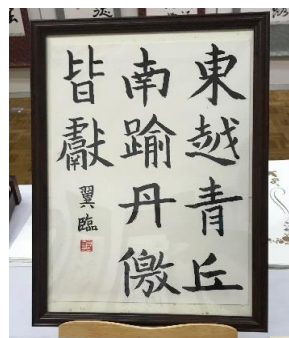 東越青丘
南踰丹儌
皆獻
翼臨